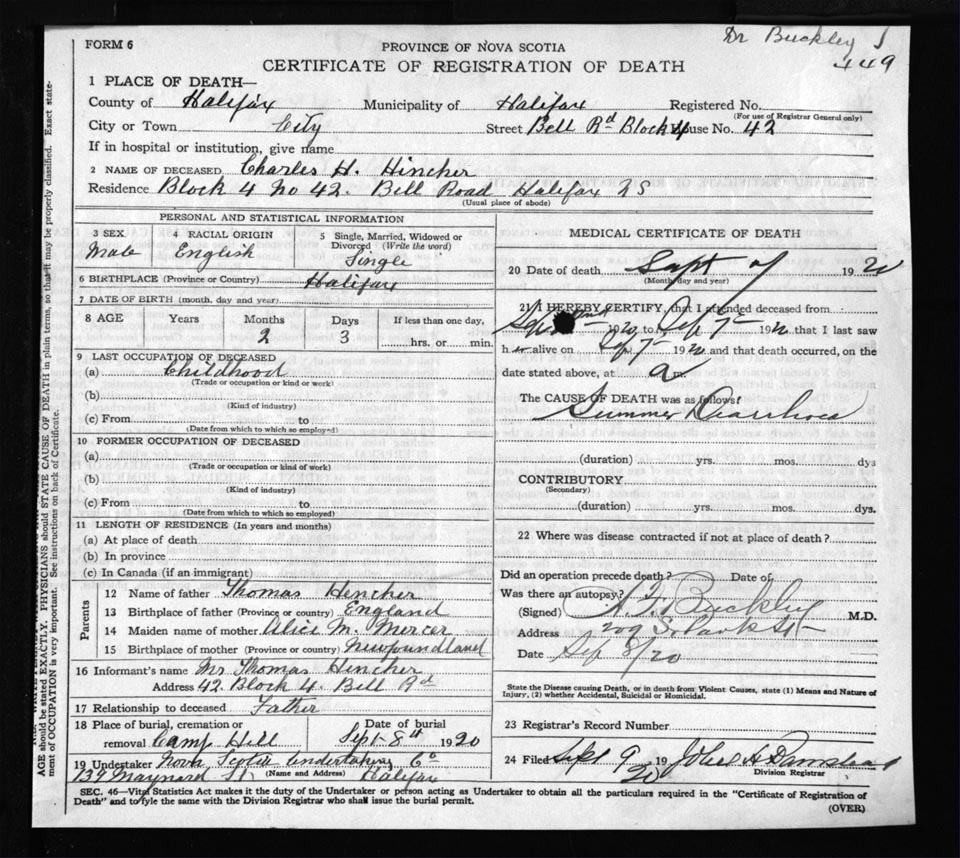 Dr Buckley
449
FORM 6
PROVINCE OF NOVA SCOTIA
CERTIFICATE OF REGISTRATION OF DEATH
1 PLACE OF DEATH—
County of Halifax Municipality of Halifax Registered No.
(For use of Registrar General only)
City or Town City Street Bell Rd Block 4 House No. 42
If in hospital or institution, give name
2 NAME OF DECEASED Charles H. Hincher
Residence Block 4 No 42. Bell Road Halifax NS
(Usual place of abode)
PERSONAL AND STATISTICAL INFORMATION
3 SEX 4 RACIAL ORIGIN 5 Single, Married, Widowed or
Divorced (Write the word)
Male English Single
6 BIRTHPLACE (Province or Country) Halifax
7 DATE OF BIRTH (month, day and year)
8 AGE Years Months Days If less than one day,
2 3 hrs. or min.
9 LAST OCCUPATION OF DECEASED
(a) Childhood
(Trade or occupation or kind or work)
(b)
(Kind of industry)
(c) From to
(Date from which to which so employed)
10 FORMER OCCUPATION OF DECEASED
(a)
(Trade or occupation or kind of work)
(b)
(Kind of industry)
(c) From to
(Date from which to which so employed)
11 LENGTH OF RESIDENCE (In years and months)
(a) At place of death
(b) In province
(c) In Canada (if an immigrant)
Parents
12 Name of father Thomas Hincher
13 Birthplace of father (Province or country) England
14 Maiden name of mother Alice M. Mercer
15 Birthplace of mother (Province or country) Newfoundland
16 Informant's name Mr Thomas Hincher
Address 42 Block 4. Bell Rd
17 Relationship to deceased Father
18 Place of burial, cremation or Date of burial
removal Camp Hill Sept 8th 1920
19 Undertaker Nova Scotia Undertaking Co
139 Maynard St (Name and Address) Halifax
MEDICAL CERTIFICATE OF DEATH
20 Date of death Sept 7 1920
(Month day and year)
21 I HEREBY CERTIFY, that I attended deceased from
1920, to Sep 7 1920 that I last saw
h alive on Sep 7 1920 and that death occurred, on the
date stated above, at a m.
The CAUSE OF DEATH was as follows:
Summer Diarrhoea
(duration) yrs. mos. dys
CONTRIBUTORY
(Secondary)
(duration) yrs. mos. dys.
22 Where was disease contracted if not at place of death?
Did an operation precede death? Date of
Was there an autopsy?
(Signed) A. F. Buckley M.D.
Address 209 S. Park St
Date Sep 8/20
State the Disease causing Death, or in death from Violent Causes, state (1) Means and Nature of
Injury, (2) whether Accidental, Suicidal or Homicidal.
23 Registrar's Record Number
24 Filed Sept 9 1920 John A
Division Registrar
SEC. 46—Vital Statistics Act makes it the duty of the Undertaker or person acting as Undertaker to obtain all the particulars required in the "Certificate of Registration of
Death" and to file the same with the Division Registrar who shall issue the burial permit.
(OVER)
AGE should be stated EXACTLY. PHYSICIANS should STATE CAUSE OF DEATH in plain terms, so that it may be properly classified. Exact state-
ment of OCCUPATION is very important. See instructions on back of Certificate.